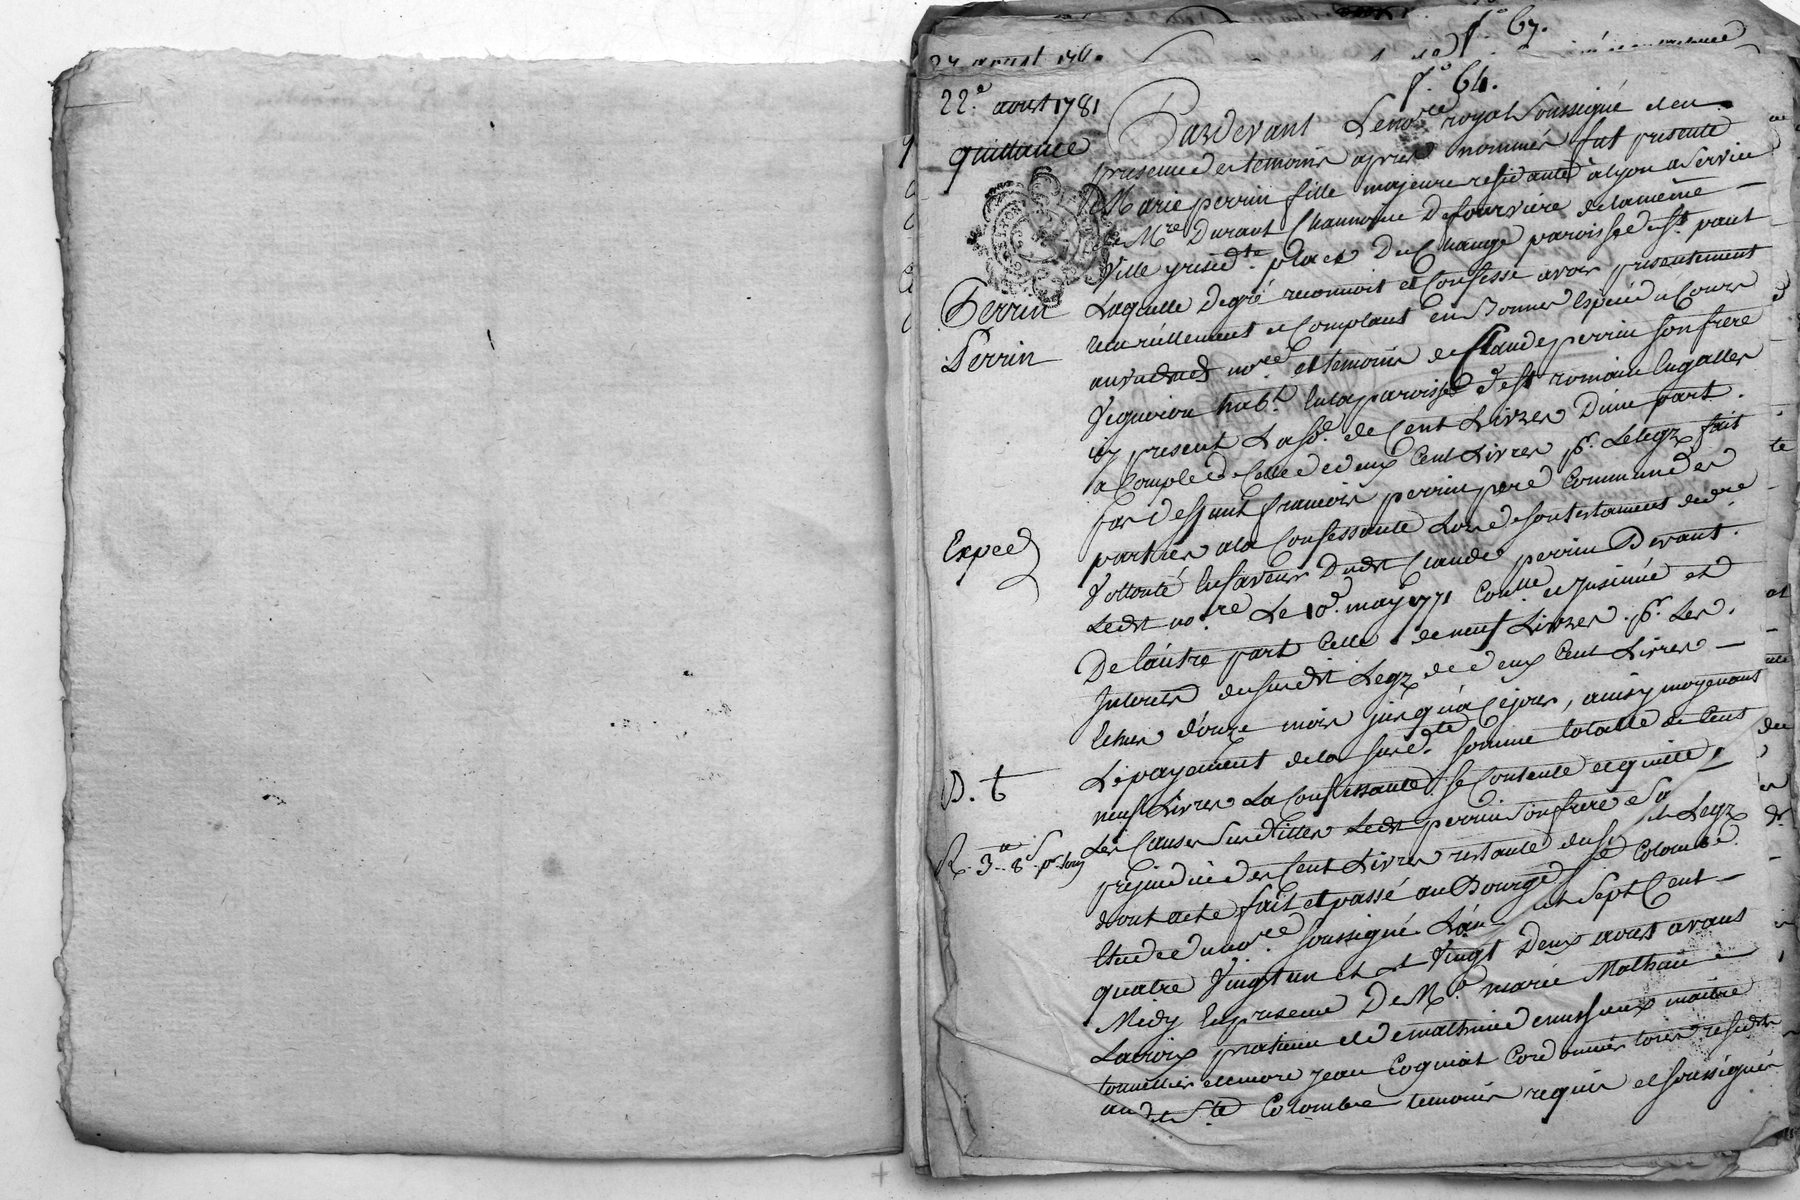 f.° 67.
27 aoust 178
f.° 64.
22.e aoust 1781
quittance
Perrin
Perrin
Exped
D. t
R. 3 8s
Pardevant Le no.re royal Soussigné et en
presence des temoins apres nommés fut presente
Marie perrin fille majeure residante à lyon au Service
de M.re Durant Chanoine de fourviere de la même
Ville y resid.te place du Change paroisse de St. paul
Laquelle de gré reconnoit et Confesse avoir presentement
recu réellement et Comptant en Bonnes Espece de Cours
au vu dud. no.re et temoins de Claude perrin son frere
Vigneron hab.t en la paroisse de St romain en galles
icy present La S.e de Cent Livres D'une part.
a Compte de Celle de deux Cent Livres p.r Le legz fait
par deffunt francois perrin pere Commun des
parties a la Confessante Lors de son testament de d.re
Vollonté en faveur Dudit Claude perrin Devant.
Ledit no.re Le 10.e may 1771 Con.llé et Jnsinué et
De lautre part Celle de neuf Livres p.r Les
Jnterets du susdit Legz de deux Cent Livres
Echus d'onze mois jusqu'a Cejour, ainsy moyenant
Le payement de la susd.te somme totalle de Cent
neuf Livres La Confessante se Contente et quitte
Les Causes Susdittes Ledit perrin son frere
prejudice des Cent Livres restante dusd. Legz
dont acte fait et passé au Bourg de Ste Colombe
Etude du no.re soussigné L'an sept Cent
quatre Vingt un et Le Vingt Deux aoust avant
Midy En presence De M.e marie Mathieu
Lacroix praticien et de mathieu maitre
tonnellier et encore jean Coquiat Cordonnier tous residts
aud. Ste Colombe temoins requis et soussignés